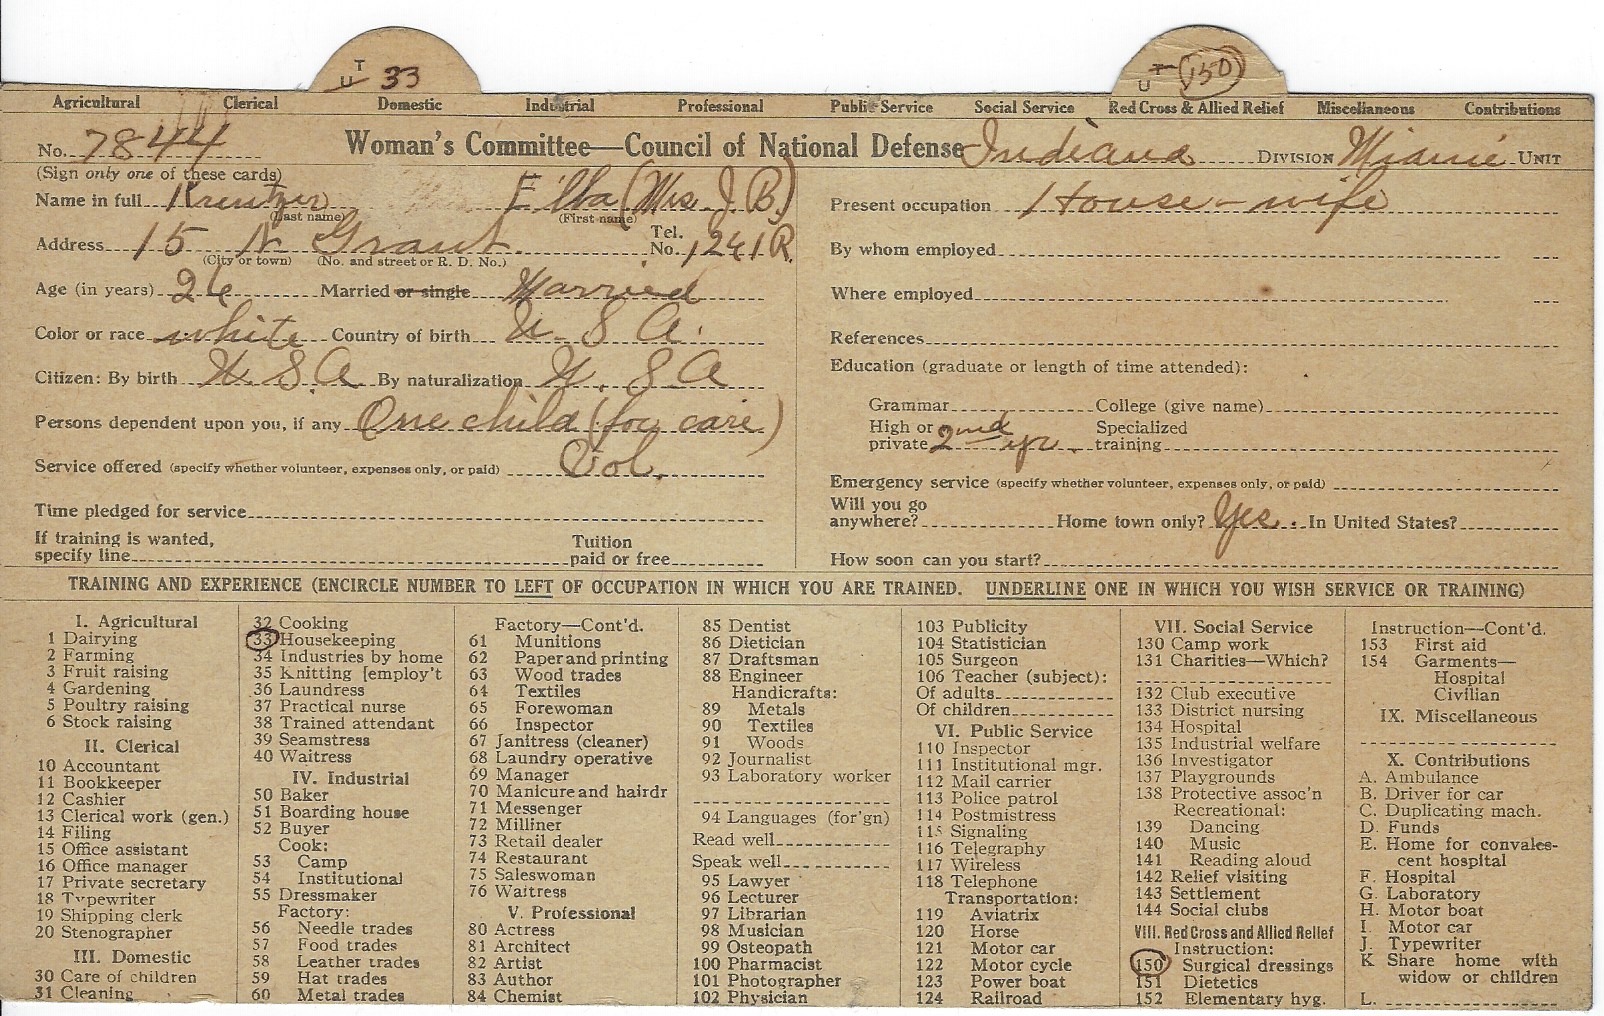 UT 33
UT 150
Agricultural Clerical Domestic Industrial Professional Public Service Social Service Red Cross & Allied Relief Miscellaneous Contributions
No. 7844 Woman's Committee—Council of National Defense Indiana DIVISION Miamie UNIT
(Sign only one of these cards)
Name in full Kreutzer Elba (Mrs J. B.)
(Last name) (First name)
Address 15 N Grant Tel. No. 1241R
(City or town) (No. and street or R. D. No.)
Age (in years) 26 Married or single Married
Color or race white Country of birth U. S. A.
Citizen: By birth U. S. A By naturalization U. S. A
Persons dependent upon you, if any One child (for care)
Service offered (specify whether volunteer, expenses only, or paid) Vol.
Time pledged for service
If training is wanted, specify line Tuition paid or free
Present occupation House-wife
By whom employed
Where employed
References
Education (graduate or length of time attended):
Grammar College (give name)
High or private 2nd yr. Specialized training
Emergency service (specify whether volunteer, expenses only, or paid)
Will you go anywhere? Home town only? Yes. In United States?
How soon can you start?
TRAINING AND EXPERIENCE (ENCIRCLE NUMBER TO LEFT OF OCCUPATION IN WHICH YOU ARE TRAINED. UNDERLINE ONE IN WHICH YOU WISH SERVICE OR TRAINING)
I. Agricultural
1 Dairying
2 Farming
3 Fruit raising
4 Gardening
5 Poultry raising
6 Stock raising
II. Clerical
10 Accountant
11 Bookkeeper
12 Cashier
13 Clerical work (gen.)
14 Filing
15 Office assistant
16 Office manager
17 Private secretary
18 Typewriter
19 Shipping clerk
20 Stenographer
III. Domestic
30 Care of children
31 Cleaning
32 Cooking
33 Housekeeping
34 Industries by home
35 Knitting [employ't
36 Laundress
37 Practical nurse
38 Trained attendant
39 Seamstress
40 Waitress
IV. Industrial
50 Baker
51 Boarding house
52 Buyer
Cook:
53 Camp
54 Institutional
55 Dressmaker
Factory:
56 Needle trades
57 Food trades
58 Leather trades
59 Hat trades
60 Metal trades
Factory—Cont'd.
61 Munitions
62 Paper and printing
63 Wood trades
64 Textiles
65 Forewoman
66 Inspector
67 Janitress (cleaner)
68 Laundry operative
69 Manager
70 Manicure and hairdr
71 Messenger
72 Milliner
73 Retail dealer
74 Restaurant
75 Saleswoman
76 Waitress
V. Professional
80 Actress
81 Architect
82 Artist
83 Author
84 Chemist
85 Dentist
86 Dietician
87 Draftsman
88 Engineer
Handicrafts:
89 Metals
90 Textiles
91 Woods
92 Journalist
93 Laboratory worker
94 Languages (for'gn)
Read well
Speak well
95 Lawyer
96 Lecturer
97 Librarian
98 Musician
99 Osteopath
100 Pharmacist
101 Photographer
102 Physician
103 Publicity
104 Statistician
105 Surgeon
106 Teacher (subject):
Of adults
Of children
VI. Public Service
110 Inspector
111 Institutional mgr.
112 Mail carrier
113 Police patrol
114 Postmistress
115 Signaling
116 Telegraphy
117 Wireless
118 Telephone
Transportation:
119 Aviatrix
120 Horse
121 Motor car
122 Motor cycle
123 Power boat
124 Railroad
VII. Social Service
130 Camp work
131 Charities—Which?
132 Club executive
133 District nursing
134 Hospital
135 Industrial welfare
136 Investigator
137 Playgrounds
138 Protective assoc'n
Recreational:
139 Dancing
140 Music
141 Reading aloud
142 Relief visiting
143 Settlement
144 Social clubs
VIII. Red Cross and Allied Relief
Instruction:
150 Surgical dressings
151 Dietetics
152 Elementary hyg.
Instruction—Cont'd.
153 First aid
154 Garments—
Hospital
Civilian
IX. Miscellaneous
X. Contributions
A. Ambulance
B. Driver for car
C. Duplicating mach.
D. Funds
E. Home for convales-
cent hospital
F. Hospital
G. Laboratory
H. Motor boat
I. Motor car
J. Typewriter
K Share home with
widow or children
L.